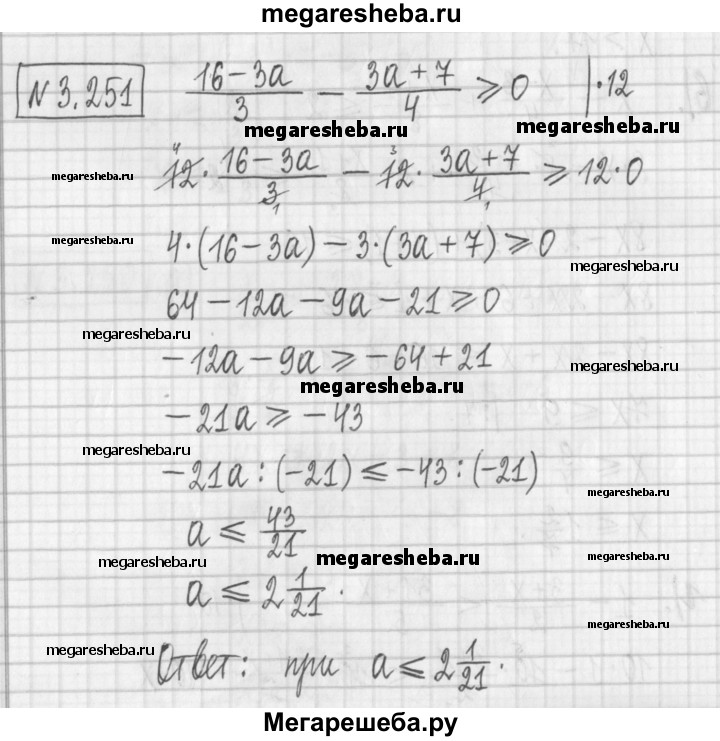 megaresheba.ru
N 3.251 (16-3a)/3 - (3a+7)/4 ⩾ 0 |·12
megaresheba.ru megaresheba.ru
megaresheba.ru 12⁴·(16-3a)/3₁ - 12³·(3a+7)/4₁ ⩾ 12·0
megaresheba.ru 4·(16-3a)-3·(3a+7)⩾0
megaresheba.ru
64-12a-9a-21⩾0
megaresheba.ru
-12a-9a⩾-64+21
megaresheba.ru
megaresheba.ru
-21a⩾-43
megaresheba.ru
-21a:(-21)⩽-43:(-21)
megaresheba.ru
a⩽43/21
megaresheba.ru megaresheba.ru
a⩽2 1/21.
megaresheba.ru
megaresheba.ru Ответ: при a⩽2 1/21.
megaresheba.ru
Мегарешеба.ру